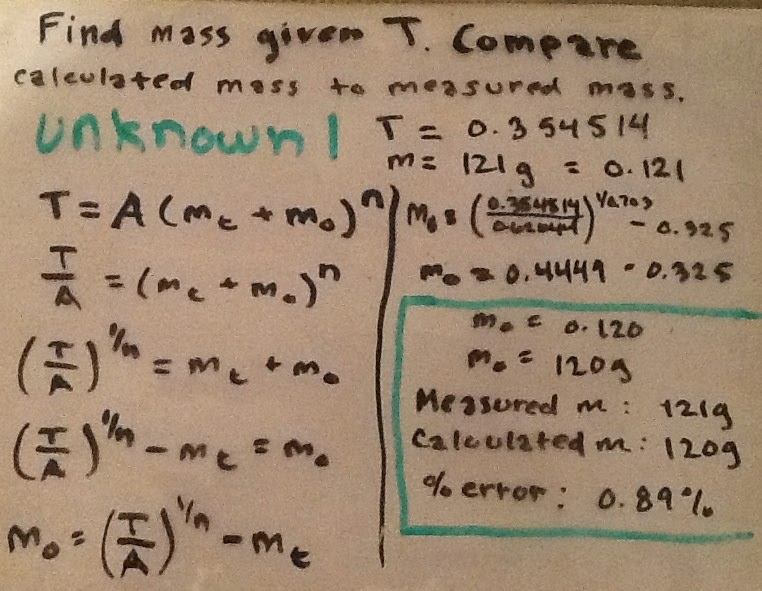 Find mass given T. Compare
calculated mass to measured mass.
unknown 1
T = 0.354514
m = 121g = 0.121
T = A (mt + mo)^n
T/A = (mt + mo)^n
(T/A)^1/n = mt + mo
(T/A)^1/n - mt = mo
mo = (T/A)^1/n - mt
- 0.325
mo = 0.4449 - 0.325
mo = 0.120
mo = 120g
Measured m: 121g
Calculated m: 120g
% error: 0.89%